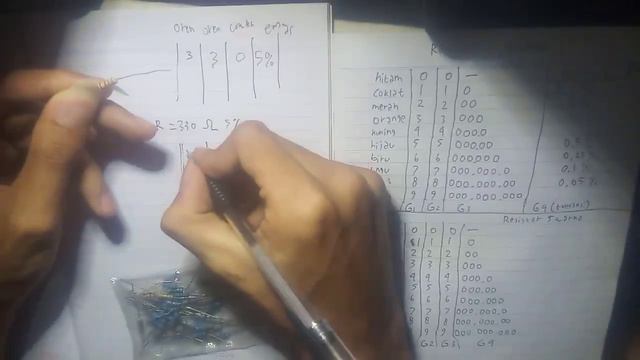 oren oren coklat emas
3 3 0 5%
R = 330 Ω 5%
R
hitam 0 0 —
coklat 1 1 0
merah 2 2 00
orange 3 3 000
kuning 4 4 000.0
hijau 5 5 000.00 0,5%
biru 6 6 000,000 0,25%
7 7 000.000.0 0,1%
8 8 000.000.00 0,05%
9 9 000.000.000
G1 G2 G3 G4 (toleransi)
Resistor 5 warna
0 0 0 —
1 1 1 0
2 2 2 00
3 3 3 000
4 4 4 000.0
5 5 5 000.00
6 6 6 000.000
7 7 7 000.000.0
8 8 8 000.000.00
9 9 000.000.000
G2 G3 G4